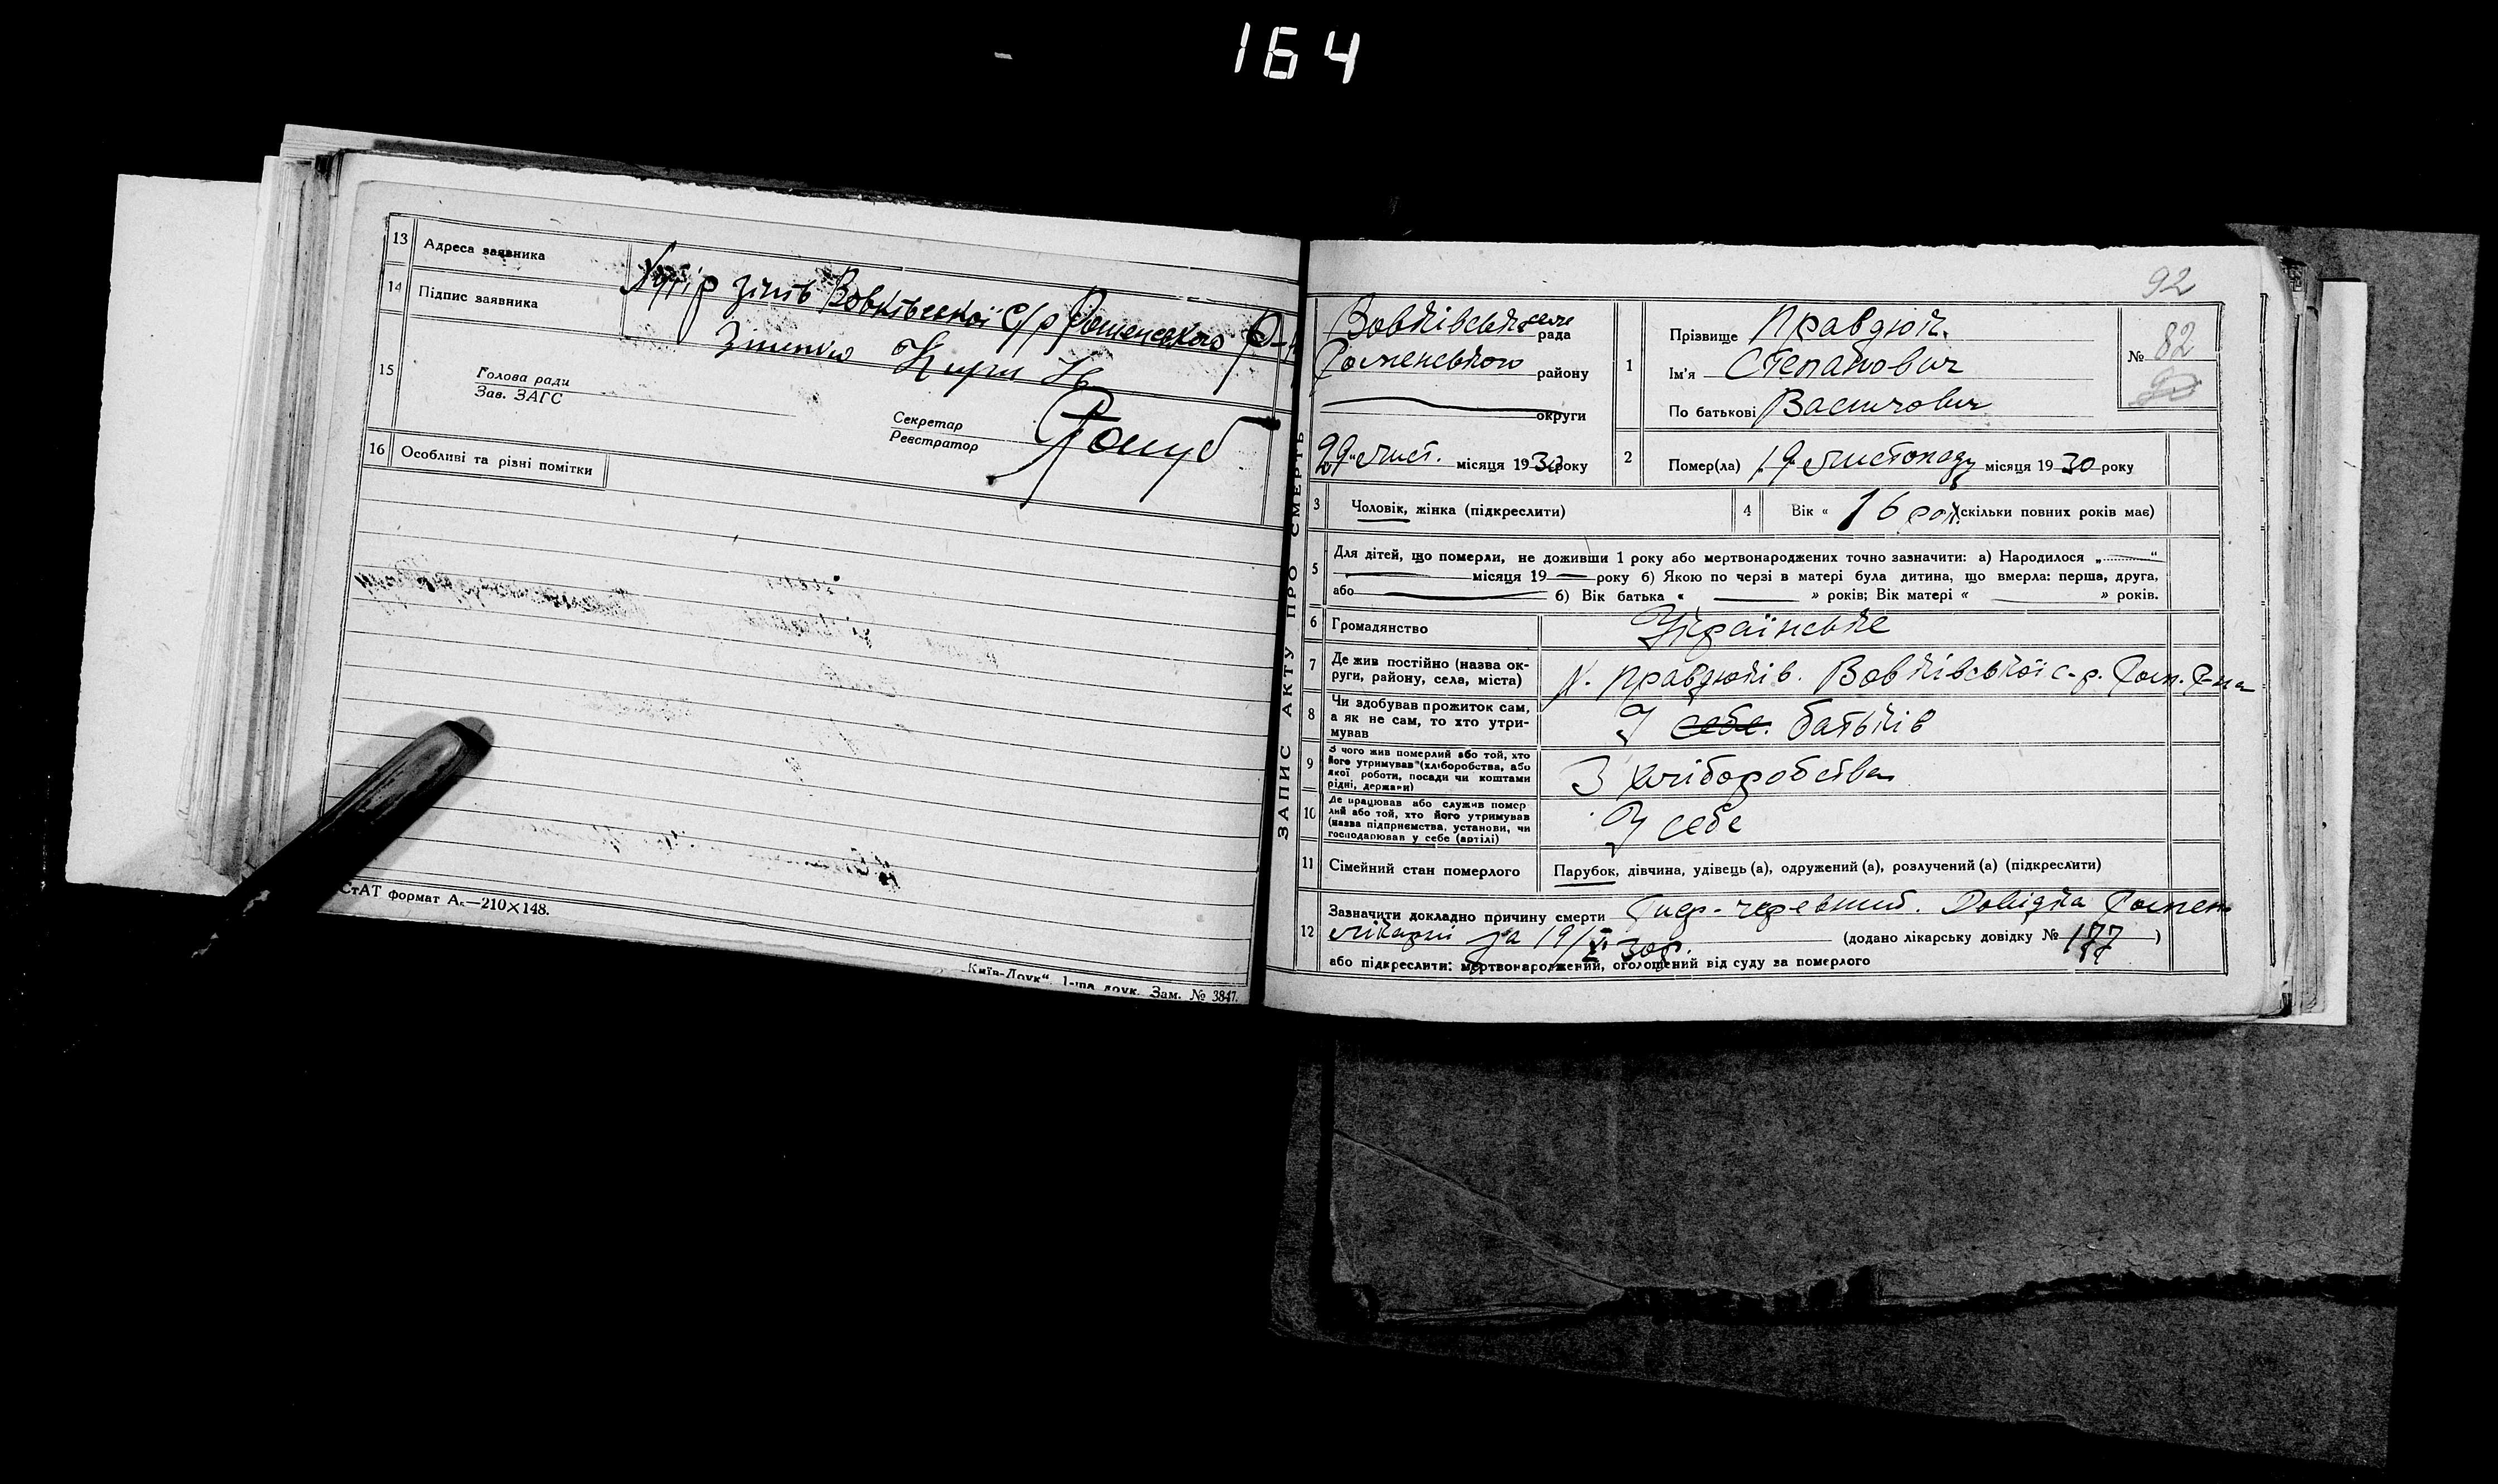 164
13 Адреса заявника Хутір Зінів Вовківської С/р Роменського Р-
14 Підпис заявника Зіненко
15 Голова ради
Зав. ЗАГС
Секретар
Реєстратор
16 Особливі та різні помітки
СтАТ формат А₅—210×148.
„Київ-Друк“. 1-ша друк. Зам. № 3847.
ЗАПИС АКТУ ПРО СМЕРТЬ
92
Вовківська сель рада
Роменського району
округи
29 лист. місяця 1930 року
1 Прізвище Правдюк
Ім'я Степанович
По батькові Васильович
№ 82
2 Помер(ла) 19 листопаду місяця 1930 року
3 Чоловік, жінка (підкреслити)
4 Вік « 16 рок. (скільки повних років має)
5 Для дітей, що померли, не доживши 1 року або мертвонароджених точно зазначити: а) Народилося „ “
місяця 19 року б) Якою по черзі в матері була дитина, що вмерла: перша, друга,
або б) Вік батька « » років; Вік матері « » років.
6 Громадянство Українське
7 Де жив постійно (назва ок-
руги, району, села, міста) х. Правдюків. Вовківської с-р. Ром. Р-на
8 Чи здобував прожиток сам,
а як не сам, то хто утри-
мував У себе. батьків
9 З чого жив померлий або той, хто
його утримував (хліборобства, або
якої роботи, посади чи коштами
рідні, держави) З хліборобства
10 Де працював або служив помер
лий або той, хто його утримував
(назва підприємства, установи, чи
господарював у себе (артілі) У себе
11 Сімейний стан померлого Парубок, дівчина, удівець (а), одружений (а), розлучений (а) (підкреслити)
12 Зазначити докладно причину смерти черевний. Довідка Ромен
лікарні за 19/XI 30р. (додано лікарську довідку № 177)
або підкреслити: мертвонароджений, оголошений від суду за померлого